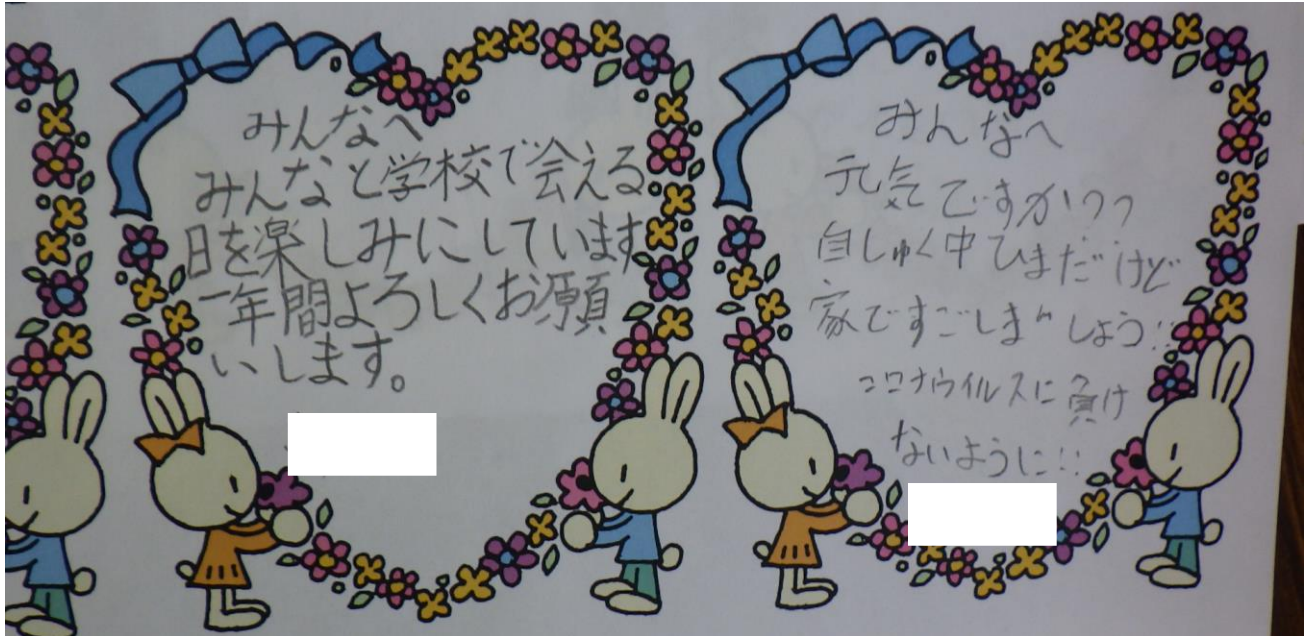 みんなへ
みんなと学校で会える
日を楽しみにしています
一年間よろしくお願
いします。
みんなへ
元気ですか??
自しゅく中ひまだけど
家ですごしましょう!!
コロナウイルスに負け
ないように!!